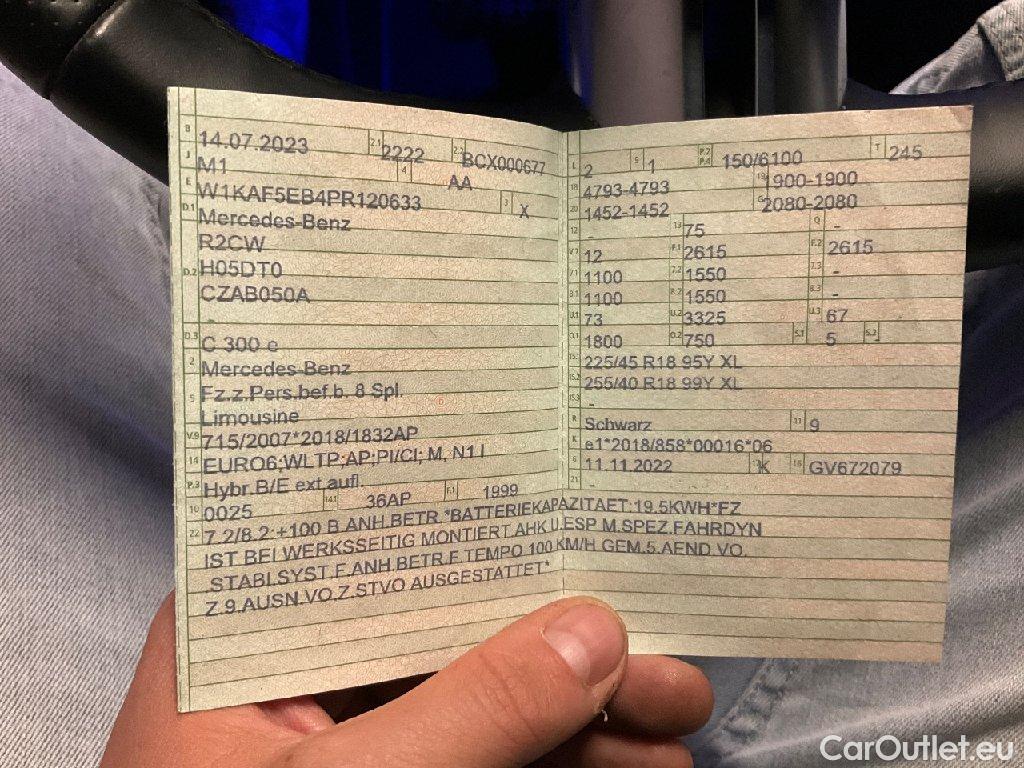 B 14.07.2023 2.1 2222 2.2 BCX000677
J M1 4 AA
E W1KAF5EB4PR120633 3 X
D.1 Mercedes-Benz
R2CW
D.2 H05DT0
CZAB050A
-
D.3 C 300 e
2 Mercedes-Benz
5 Fz.z.Pers.bef.b. 8 Spl.
Limousine
V.9 715/2007*2018/1832AP
14 EURO6;WLTP;AP;PI/CI; M, N1 I
P.3 Hybr.B/E ext.aufl.
10 0025 14.1 36AP P.1 1999
L 2 9 1 P.2 P.4 150/6100 T 245
18 4793-4793 19 1900-1900
20 1452-1452 G 2080-2080
12 - 13 75 Q -
V.7 12 F.1 2615 F.2 2615
7.1 1100 7.2 1550 7.3 -
8.1 1100 8.2 1550 8.3 -
U.1 73 U.2 3325 U.3 67
O.1 1800 O.2 750 S.1 5 S.2
15.1 225/45 R18 95Y XL
15.2 255/40 R18 99Y XL
15.3 -
R Schwarz 11 9
K e1*2018/858*00016*06
6 11.11.2022 17 K 16 GV672079
21 -
22 7.2/8.2:+100 B.ANH.BETR.*BATTERIEKAPAZITAET:19.5KWH*FZ
IST BEI WERKSSEITIG MONTIERT.AHK U.ESP M.SPEZ.FAHRDYN
.STABI.SYST.F.ANH.BETR.F.TEMPO 100 KM/H GEM.5.AEND.VO.
Z.9.AUSN.VO.Z.STVO AUSGESTATTET*
CarOutlet.eu